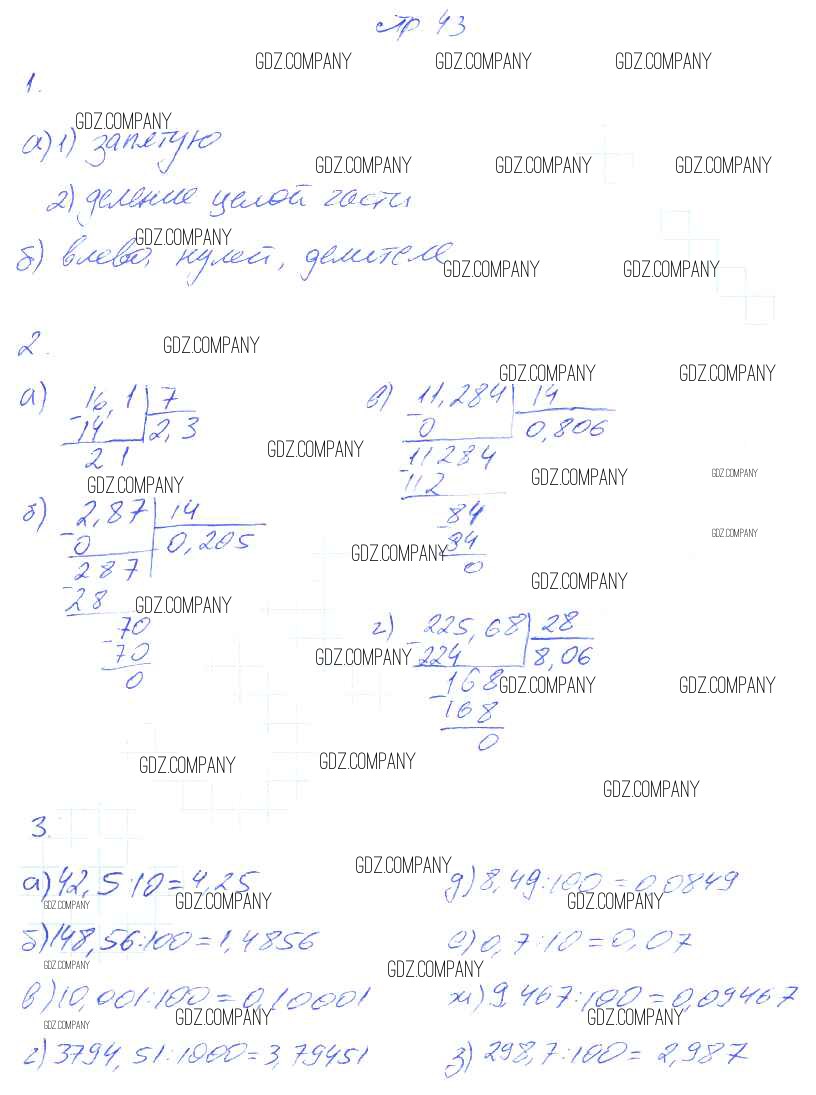 стр 43
GDZ.COMPANY GDZ.COMPANY GDZ.COMPANY
1.
GDZ.COMPANY
а) 1) запятую
GDZ.COMPANY GDZ.COMPANY GDZ.COMPANY
2) деление целой части
GDZ.COMPANY
б) влево, нулей, делителе
GDZ.COMPANY GDZ.COMPANY
2.
GDZ.COMPANY
GDZ.COMPANY GDZ.COMPANY
а) 16,1 | 7
-14 | 2,3
21
GDZ.COMPANY
GDZ.COMPANY
б) 2,87 | 14
-0 | 0,205
287
-28
GDZ.COMPANY
70
-70
0
в) 11,284 | 14
-0 | 0,806
11284
-112
GDZ.COMPANY GDZ.COMPANY
84
-84
0
GDZ.COMPANY
GDZ.COMPANY
GDZ.COMPANY
г) 225,68 | 28
-224 | 8,06
GDZ.COMPANY
168
GDZ.COMPANY GDZ.COMPANY
-168
0
GDZ.COMPANY GDZ.COMPANY
GDZ.COMPANY
3.
GDZ.COMPANY
а) 42,5:10=4,25
GDZ.COMPANY GDZ.COMPANY
б) 148,56:100=1,4856
GDZ.COMPANY
в) 10,001:100=0,10001
GDZ.COMPANY GDZ.COMPANY
г) 3794,51:1000=3,79451
д) 8,49:100=0,0849
GDZ.COMPANY
е) 0,7:10=0,07
GDZ.COMPANY
ж) 9,467:100=0,09467
GDZ.COMPANY
з) 298,7:100=2,987